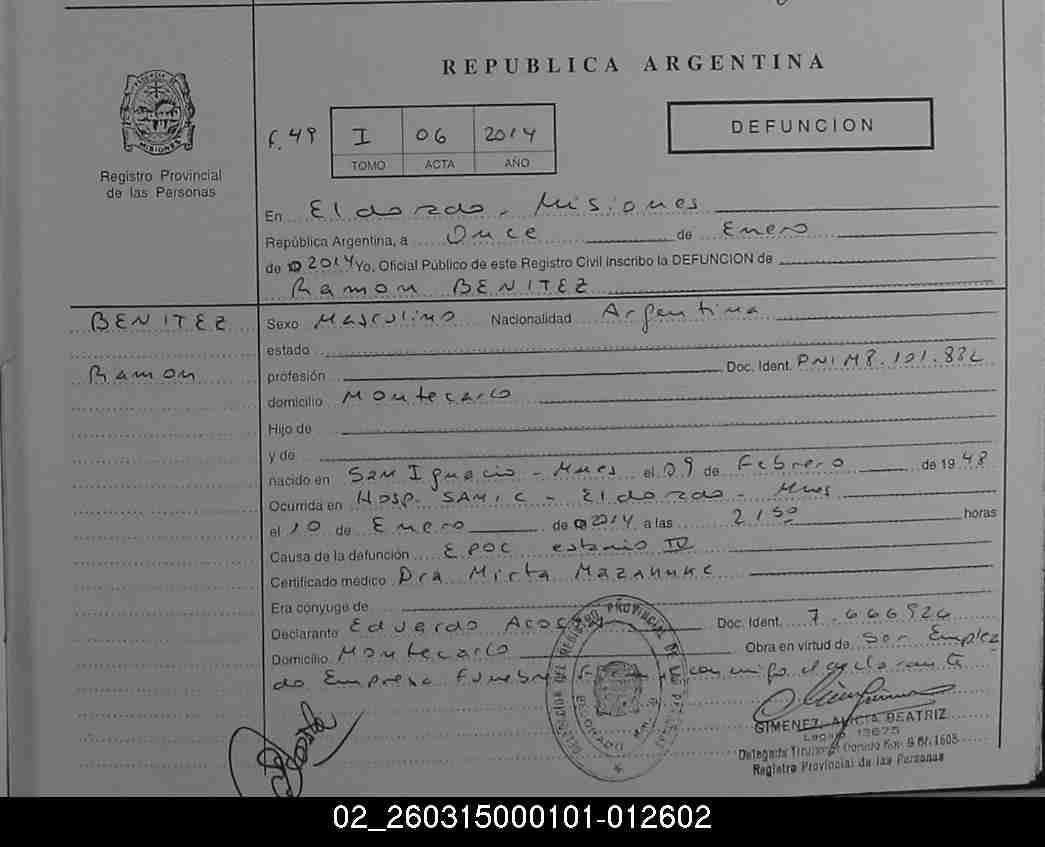 REPUBLICA ARGENTINA
F. 49 I 06 2014
TOMO ACTA AÑO
DEFUNCION
MISIONES
Registro Provincial
de las Personas
En Eldorado, Misiones
República Argentina, a Once de Enero
de 2014 Yo, Oficial Público de este Registro Civil inscribo la DEFUNCION de
Ramon BENITEZ
BENITEZ
Ramon
Sexo Masculino Nacionalidad Argentina
estado
profesión Doc. Ident. DNI M8.101.882
domicilio Montecarlo
Hijo de
y de
nacido en San Ignacio - Mnes el 09 de Febrero de 1948
Ocurrida en Hosp. SAMIC - Eldorado - Mnes
el 10 de Enero de 2014 a las 21 50 horas
Causa de la defunción EPOC estadio IV
Certificado médico Dra Mirta
Era cónyuge de
Declarante Eduardo Acosta Doc. Ident. 7.666.926
Domicilio Montecarlo Obra en virtud de Ser Emplea
do Empresa Funebre conmigo el declarante
GIMENEZ, ALICIA BEATRIZ
Legajo 13675
Delegada Titular
Registro Provincial de las Personas
02_260315000101-012602